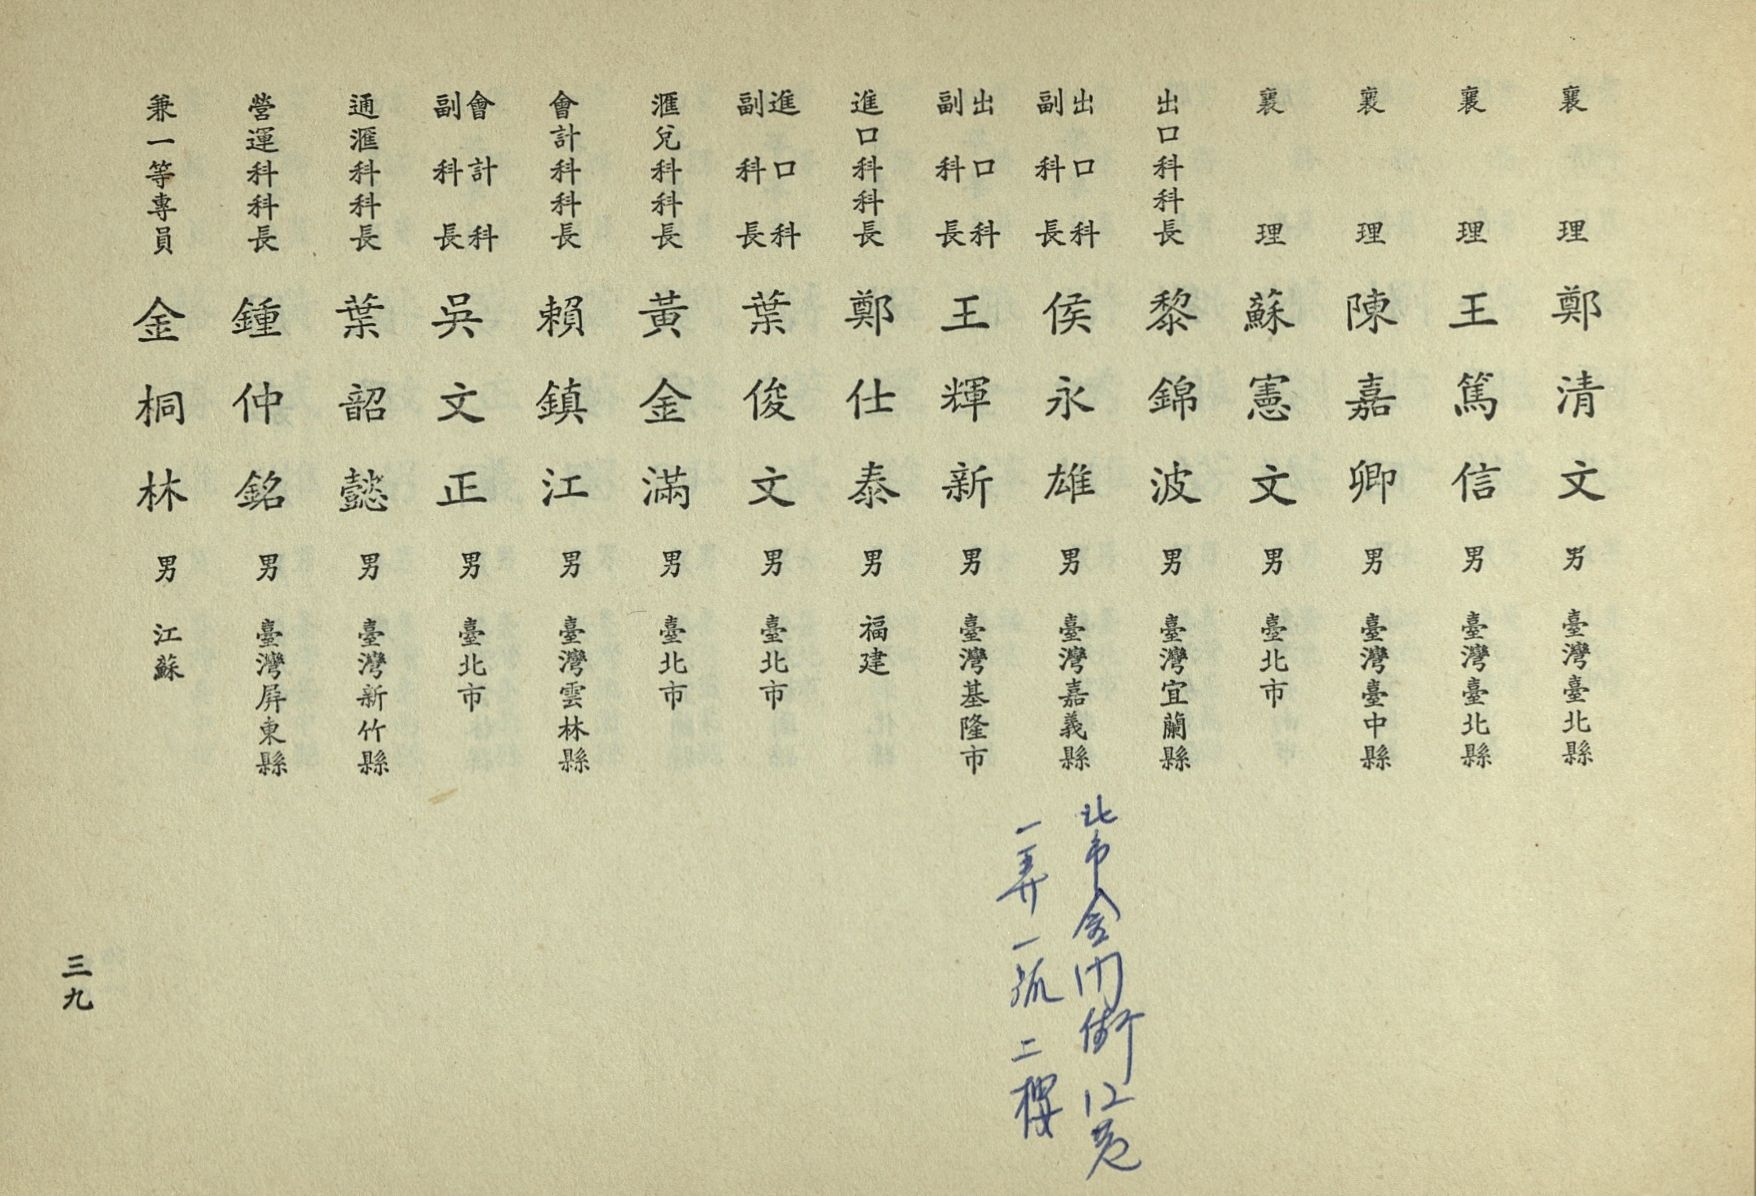 襄理 鄭清文 男 臺灣臺北縣
襄理 王篤信 男 臺灣臺北縣
襄理 陳嘉卿 男 臺灣臺中縣
襄理 蘇憲文 男 臺北市
出口科科長 黎錦波 男 臺灣宜蘭縣
出口科副科長 侯永雄 男 臺灣嘉義縣
北市金門街12巷
一弄一號二樓
出口科副科長 王輝新 男 臺灣基隆市
進口科科長 鄭仕泰 男 福建
進口科副科長 葉俊文 男 臺北市
滙兌科科長 黃金滿 男 臺北市
會計科科長 賴鎮江 男 臺灣雲林縣
會計科副科長 吳文正 男 臺北市
通滙科科長 葉韶懿 男 臺灣新竹縣
營運科科長 鍾仲銘 男 臺灣屏東縣
兼一等專員 金桐林 男 江蘇
三九